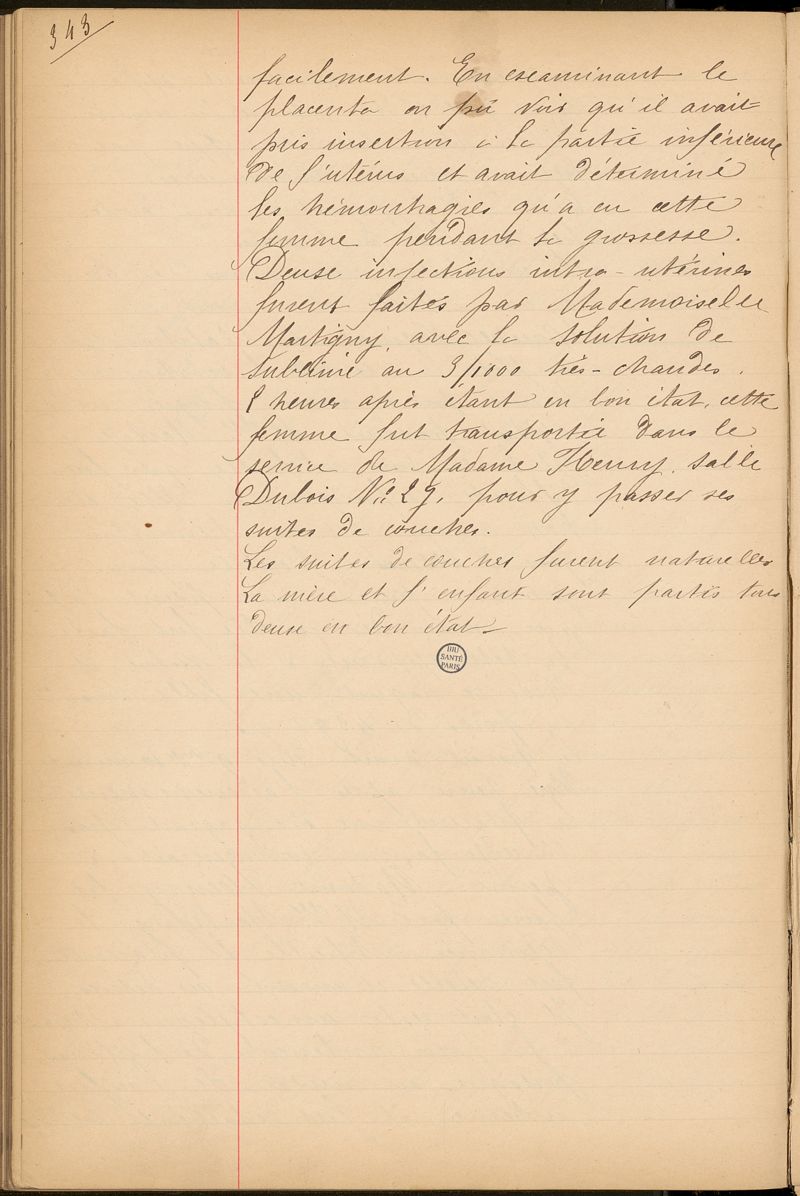 343
facilement. En examinant le
placenta on pu voir qu'il avait
pris insertion à la partie inférieure
de l'utérus et avait déterminé
les hémorrhagies qu'a eu cette
femme pendant la grossesse.
Deuse injections intra-utérines
furent faites par Mademoiselle
Martigny, avec la solution de
sublimé au 3/1000 très-chaudes.
2 heures après étant en bon état, cette
femme fut transportée dans le
service de Madame Henry, salle
Dubois No 29, pour y passer ses
suites de couches.
Les suites de couches furent naturelles
La mère et l'enfant sont partis tous
deuse en bon état_
BIU
SANTÉ
PARIS